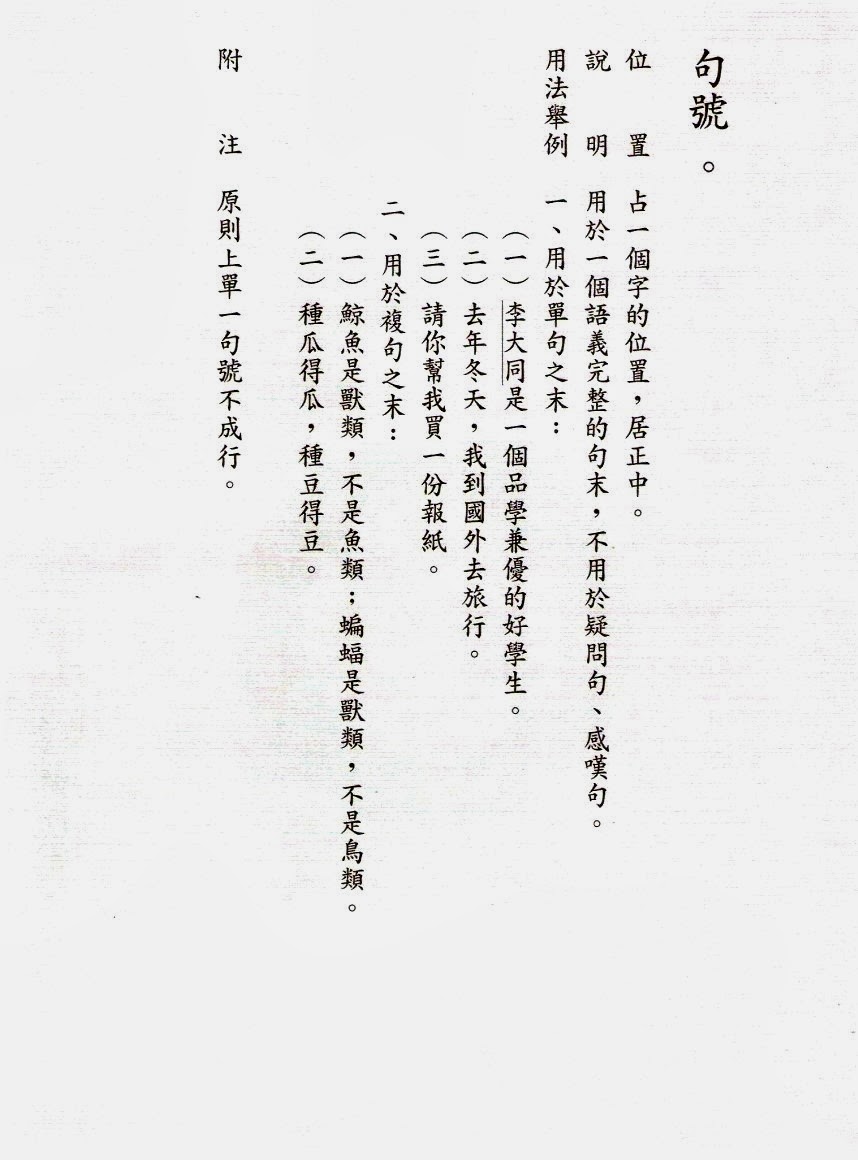 句號。
位置 占一個字的位置，居正中。
說明 用於一個語義完整的句末，不用於疑問句、感嘆句。
用法舉例 一、用於單句之末：
（一）李大同是一個品學兼優的好學生。
（二）去年冬天，我到國外去旅行。
（三）請你幫我買一份報紙。
二、用於複句之末：
（一）鯨魚是獸類，不是魚類；蝙蝠是獸類，不是鳥類。
（二）種瓜得瓜，種豆得豆。
附注 原則上單一句號不成行。